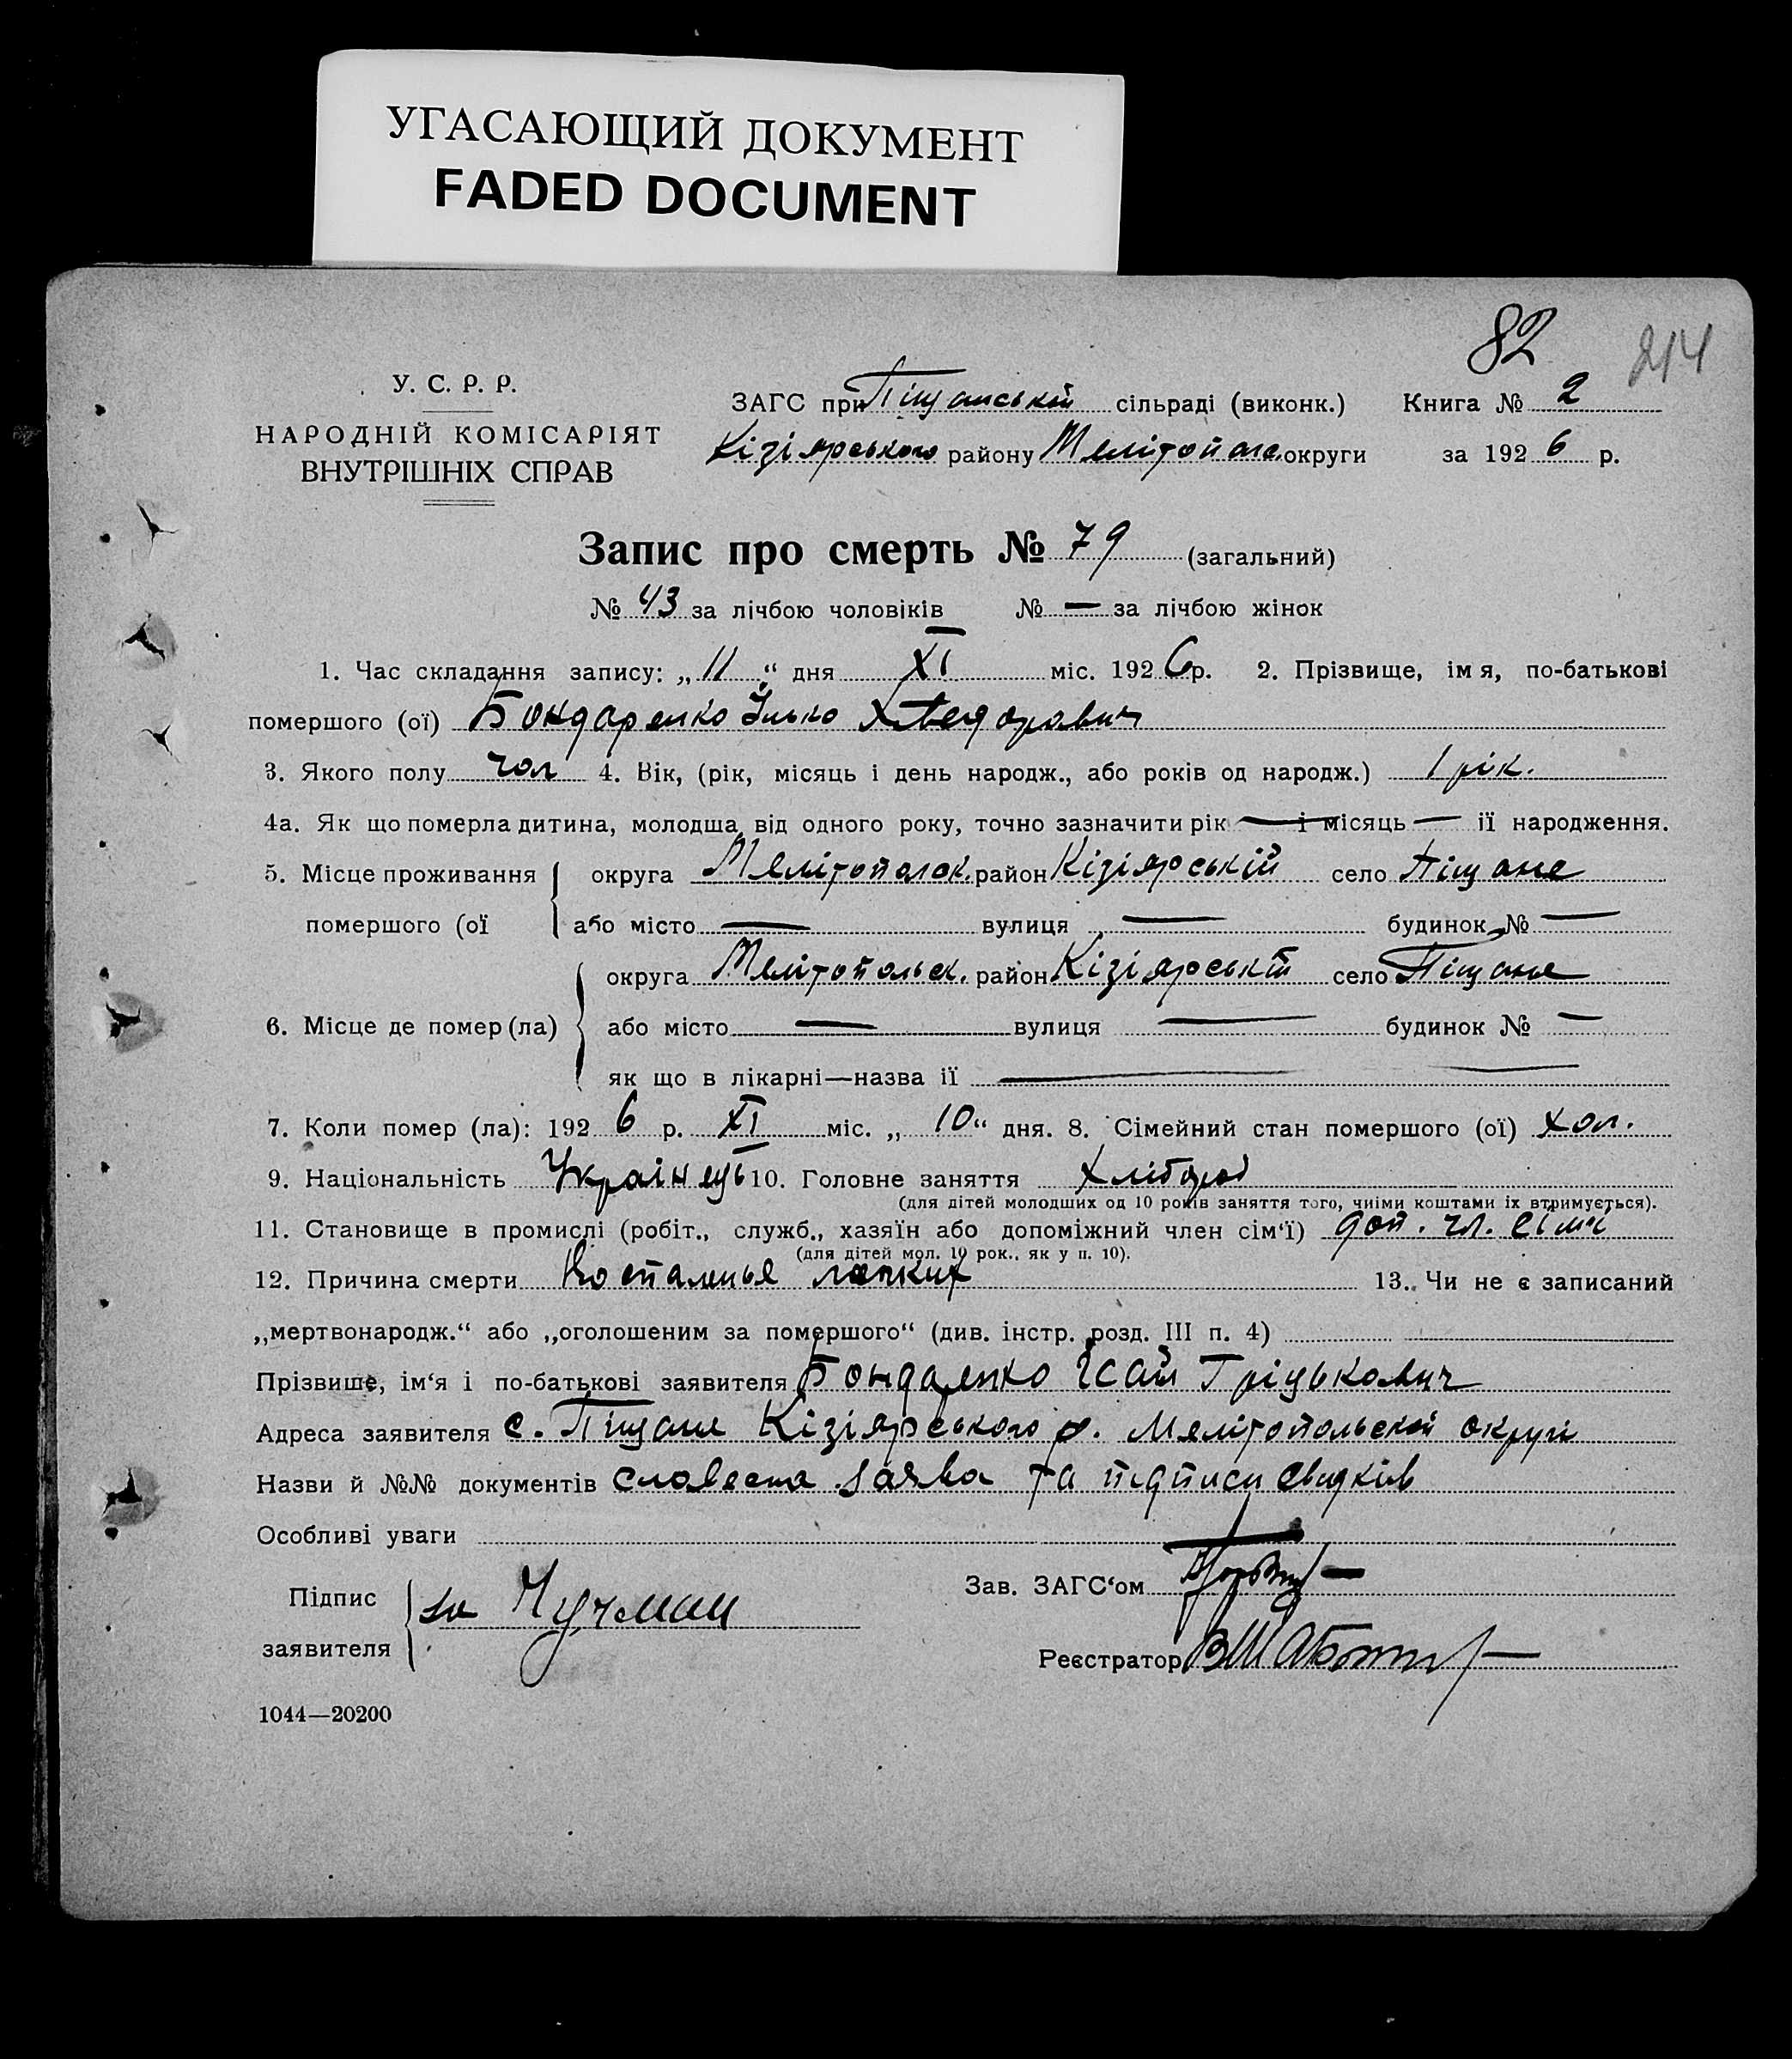 УГАСАЮЩИЙ ДОКУМЕНТ
FADED DOCUMENT
82 214
У. С. Р. Р.
НАРОДНІЙ КОМІСАРІЯТ
ВНУТРІШНІХ СПРАВ
ЗАГС при Піщанській сільраді (виконк.) Книга № 2
Кізіярського району Мелітопольс. округи за 1926 р.
Запис про смерть № 79 (загальний)
№ 43 за лічбою чоловіків № — за лічбою жінок
1. Час складання запису: „11“ дня XI міс. 1926 р. 2. Прізвище, ім я, по-батькові
помершого (ої) Бондаренко Ілько Хведорович
3. Якого полу чол 4. Вік, (рік, місяць і день народж., або років од народж.) 1 рік.
4а. Як що померла дитина, молодша від одного року, точно зазначити рік — і місяць — її народження.
5. Місце проживання помершого (ої
округа Мелітопольск. район Кізіярській село Піщане
або місто — вулиця — будинок № —
6. Місце де помер (ла)
округа Мелітопольск. район Кізіярській село Піщане
або місто — вулиця — будинок № —
як що в лікарні—назва її —
7. Коли помер (ла): 1926 р. XI міс. „10“ дня. 8. Сімейний стан помершого (ої) хол.
9. Національність Українець 10. Головне заняття Хлібороб
(для дітей молодших од 10 років заняття того, чиїми коштами їх втримується).
11. Становище в промислі (робіт., служб., хазяїн або допоміжний член сім‘ї) доп. чл. сімї
(для дітей мол. 10 рок., як у п. 10).
12. Причина смерти Воспаленье 13. Чи не є записаний
„мертвонародж.“ або „оголошеним за помершого“ (див. інстр. розд. III п. 4)
Прізвище, ім‘я і по-батькові заявителя Бондаренко Ісай Гріцькович
Адреса заявителя с. Піщане Кізіярського р. Мелітопольскої округи
Назви й №№ документів словесна заява та підписи свидків
Особливі уваги
Підпис заявителя за Чучман
Зав. ЗАГС‘ом
Реєстратор
1044—20200